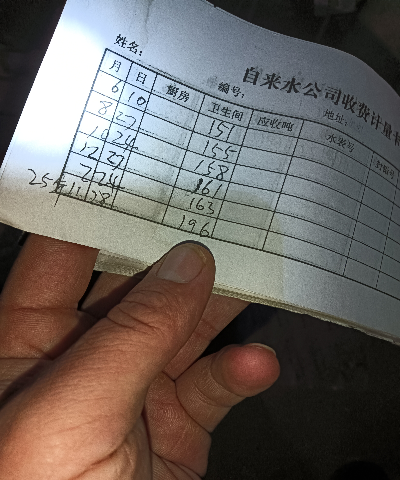 自来水公司收费计量
姓名: 编号: 地址:
月 日 厨房 卫生间 应收吨 水表号
6 10 151
8 22 155
10 24 158
12 22 161
2 24 163
11 28 196